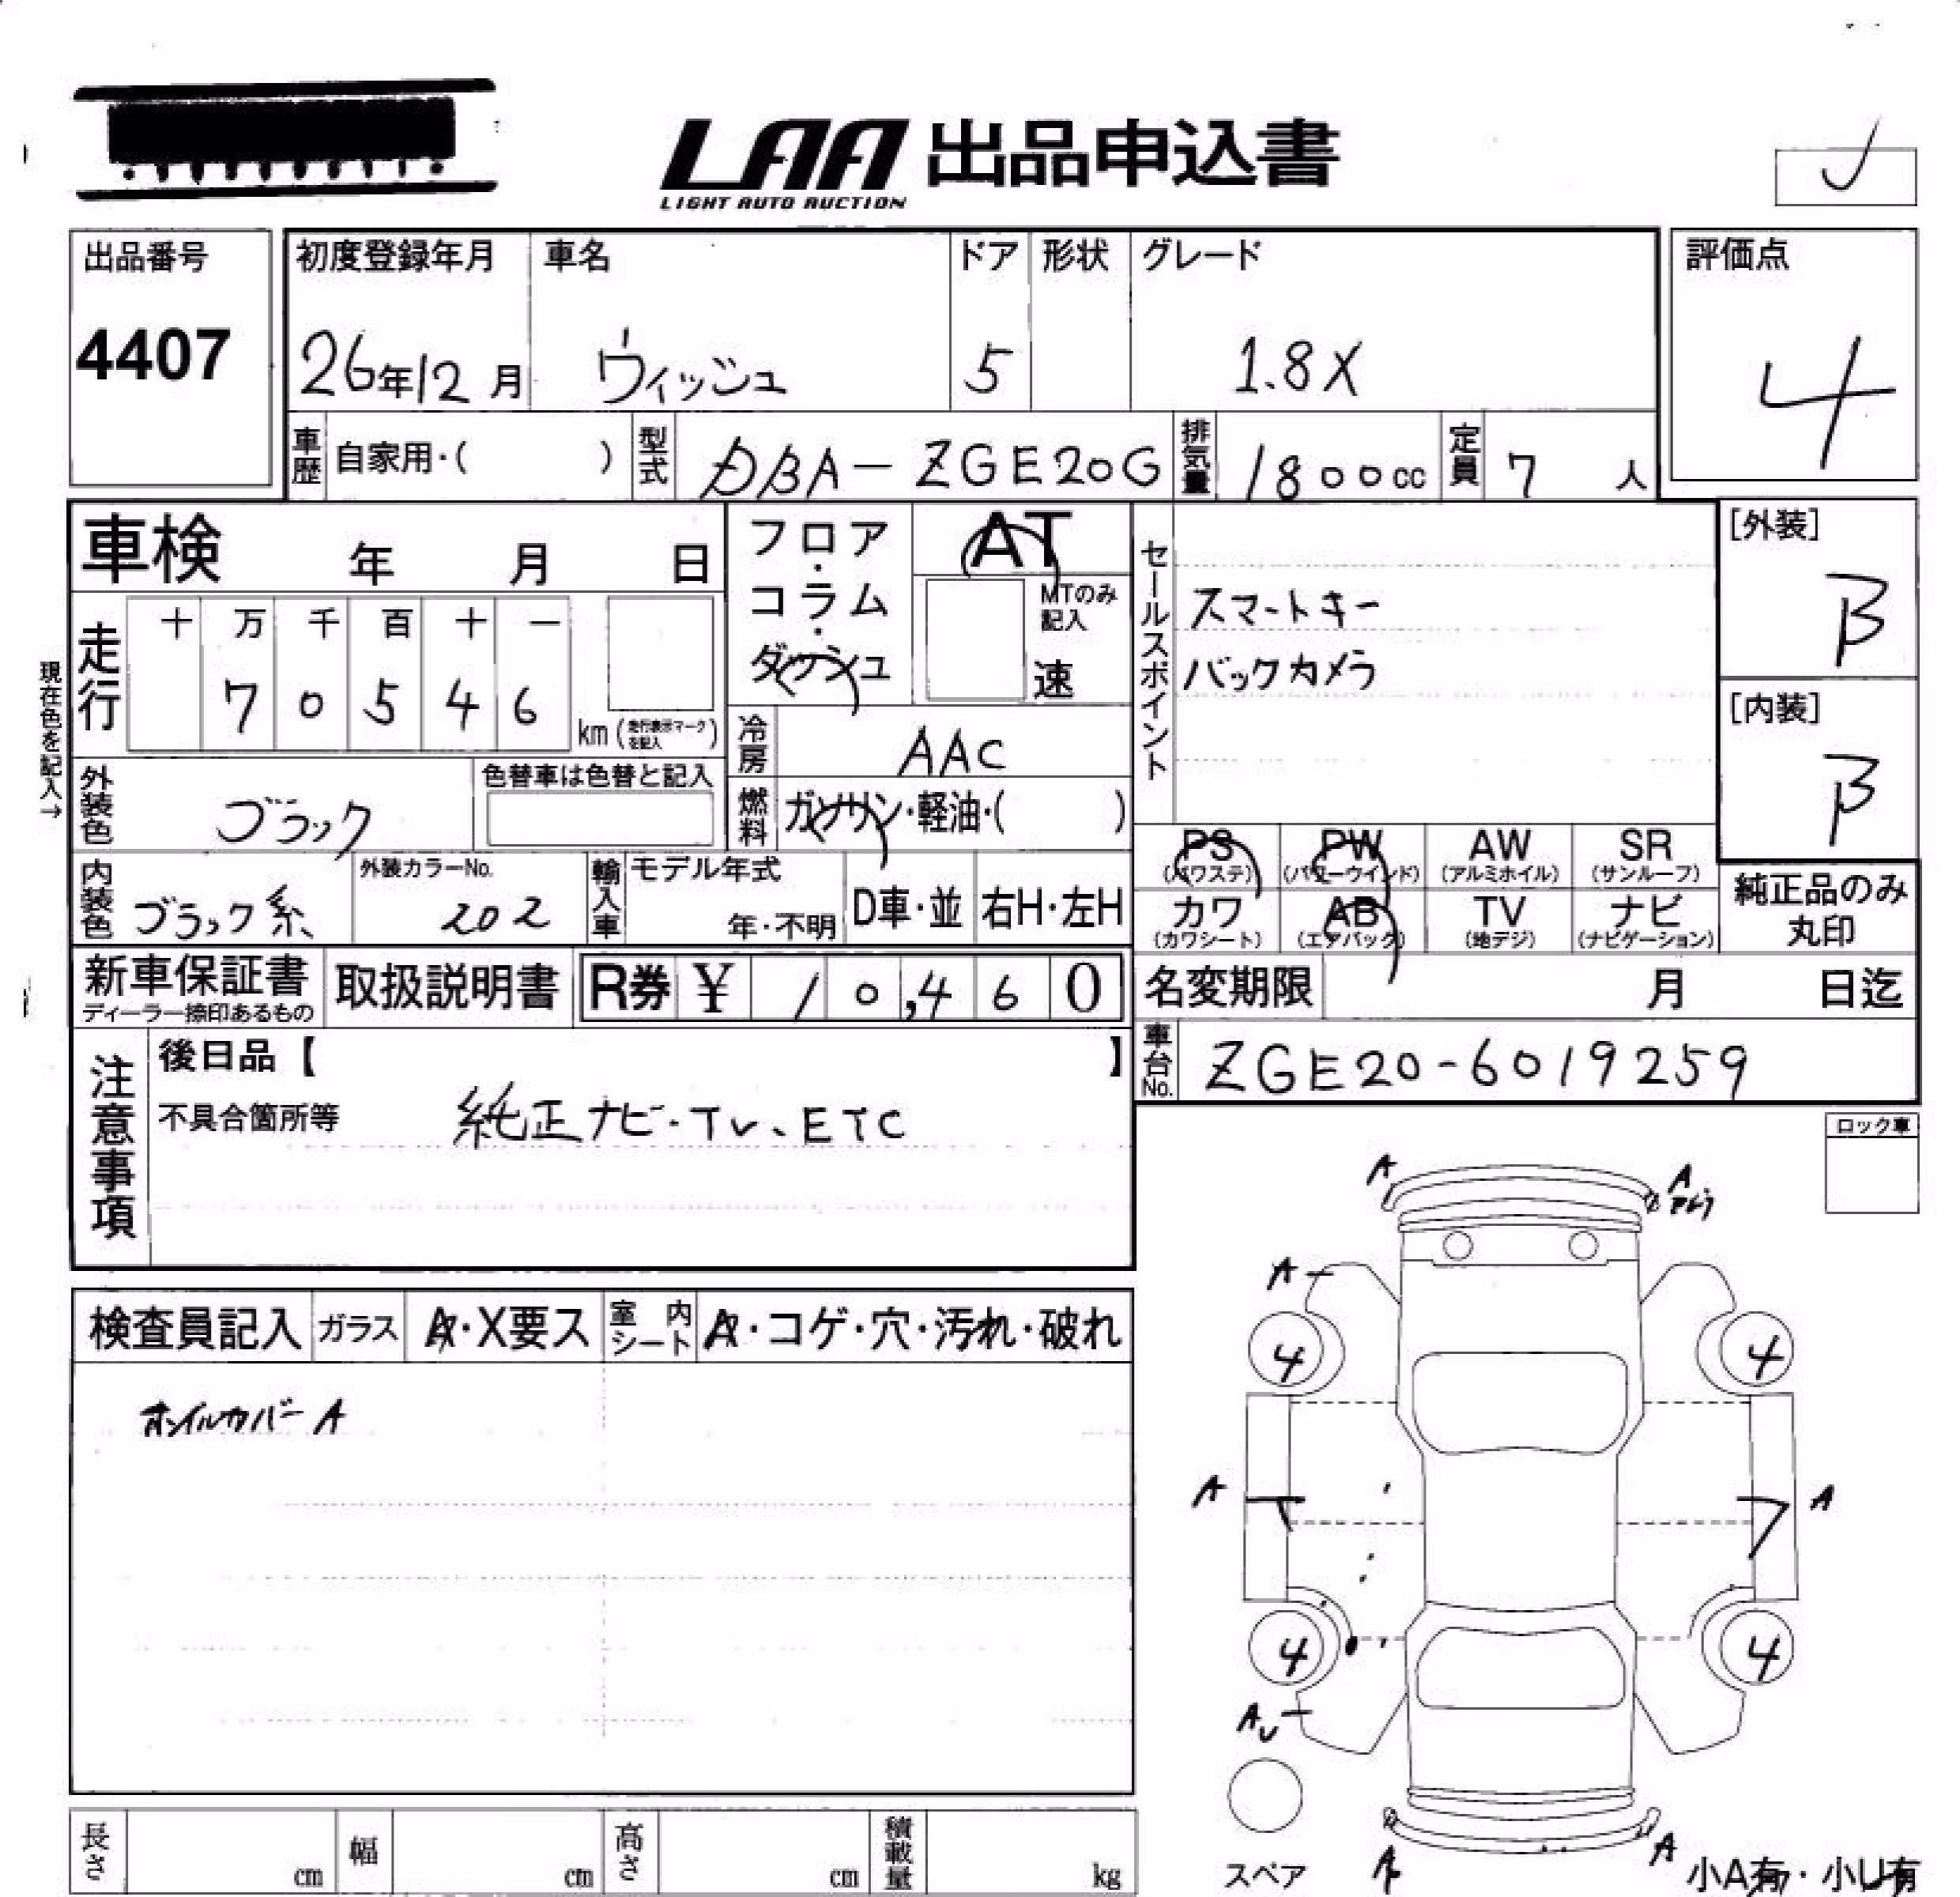 LAA 出品申込書
LIGHT AUTO AUCTION
出品番号
4407
初度登録年月
26年12月
車名
ウィッシュ
ドア
5
形状
グレード
1.8X
評価点
4
車歴 自家用・( )
型式 DBA-ZGE20G
排気量 1800cc
定員 7人
車検 年 月 日
フロア・コラム・ダッシュ
AT
MTのみ記入
速
セールスポイント
スマートキー
バックカメラ
[外装]
B
[内装]
B
現在色を記入→
走行
十 万 千 百 十 一
7 0 5 4 6
km (走行表示マークを記入)
冷房 AAC
外装色 ブラック
色替車は色替と記入
燃料 ガソリン・軽油・( )
内装色 ブラック系
外装カラーNo.
202
輸入車
モデル年式
年・不明
D車・並
右H・左H
PS
(パワステ)
PW
(パワーウインド)
AW
(アルミホイル)
SR
(サンルーフ)
カワ
(カワシート)
AB
(エアバック)
TV
(地デジ)
ナビ
(ナビゲーション)
純正品のみ
丸印
新車保証書
ディーラー捺印あるもの
取扱説明書
R券 ¥ 10,460
名変期限 月 日迄
車台No. ZGE20-6019259
注意事項
後日品【 】
不具合箇所等
純正ナビ・TV、ETC
ロック車
検査員記入
ガラス
A・X要ス
室内シート
A・コゲ・穴・汚れ・破れ
ホイルカバー A
A
A
A
4
4
A
A
4
4
AU
A
A
スペア
小A有・小U有
長さ cm
幅 cm
高さ cm
積載量 kg